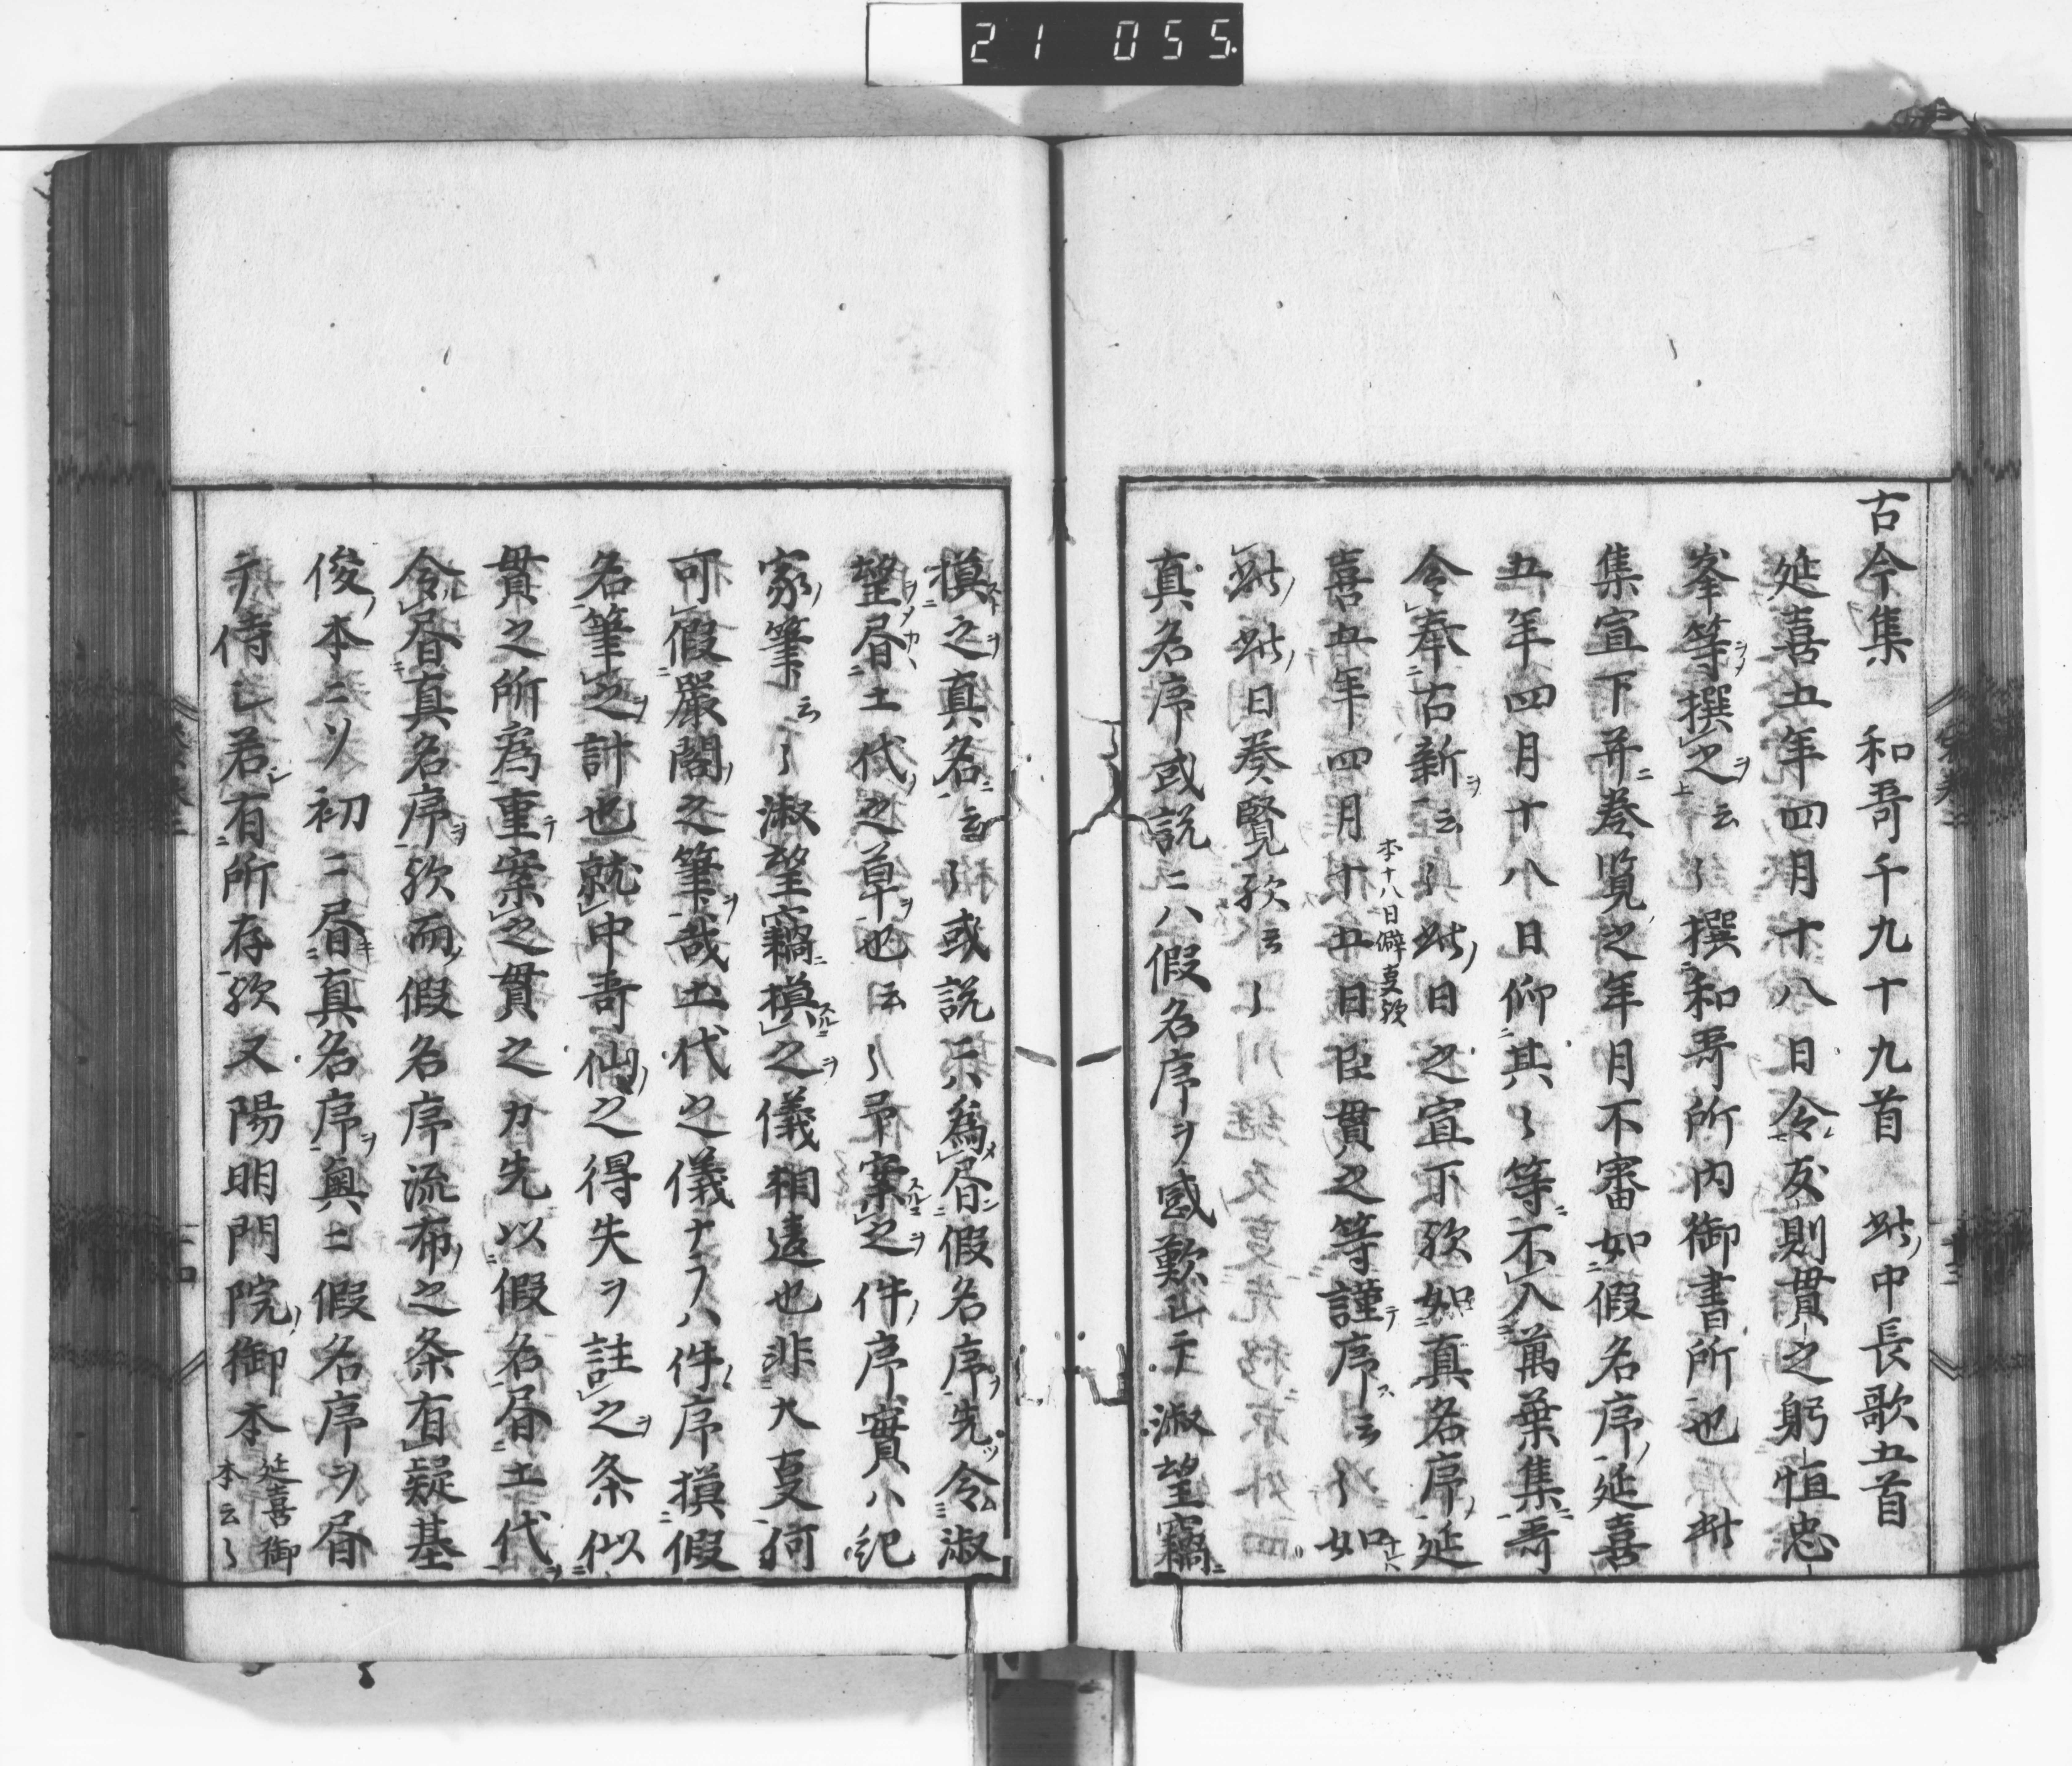 21 055
古今集　和哥千九十九首　此ノ中長歌五首
延喜五年四月十八日令友則貫之躬恒忠
峯等撰之云〻撰和哥所内御書所也此
集宣下并奏覧之年月不審如假名序延喜
五年四月十八日仰其〻等不入萬葉集哥
令奉古新云〻此日之宣下歟如真名序延
喜五年四月十五日臣貫之等謹序云〻如
本十八日僻支歟
此此日奏覽歟云〻
真名序或説ニハ假名序ヲ感歎シテ淑望竊
摸之真名云〻或説ニハ為昏假名序先令淑
望昏土代之草也云〻予案之件序實ハ紀
家筆云〻淑望竊摸之儀相違也非大支何
可假嚴閤之筆哉土代之儀ナラハ件序摸假
名筆之計也就中哥仙之得失ヲ註之条似
貫之所為重案之貫之力先以假名昏土代
令昏真名序歟而假名序流布之条有疑基
俊本ニソ初ニ昏真名序奥ニ假名序ヲ昏
テ侍シ若有所存歟又陽明門院御本延喜御
本云〻